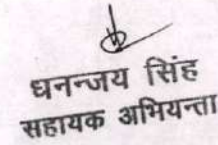 धनन्जय सिंह
सहायक अभियन्ता